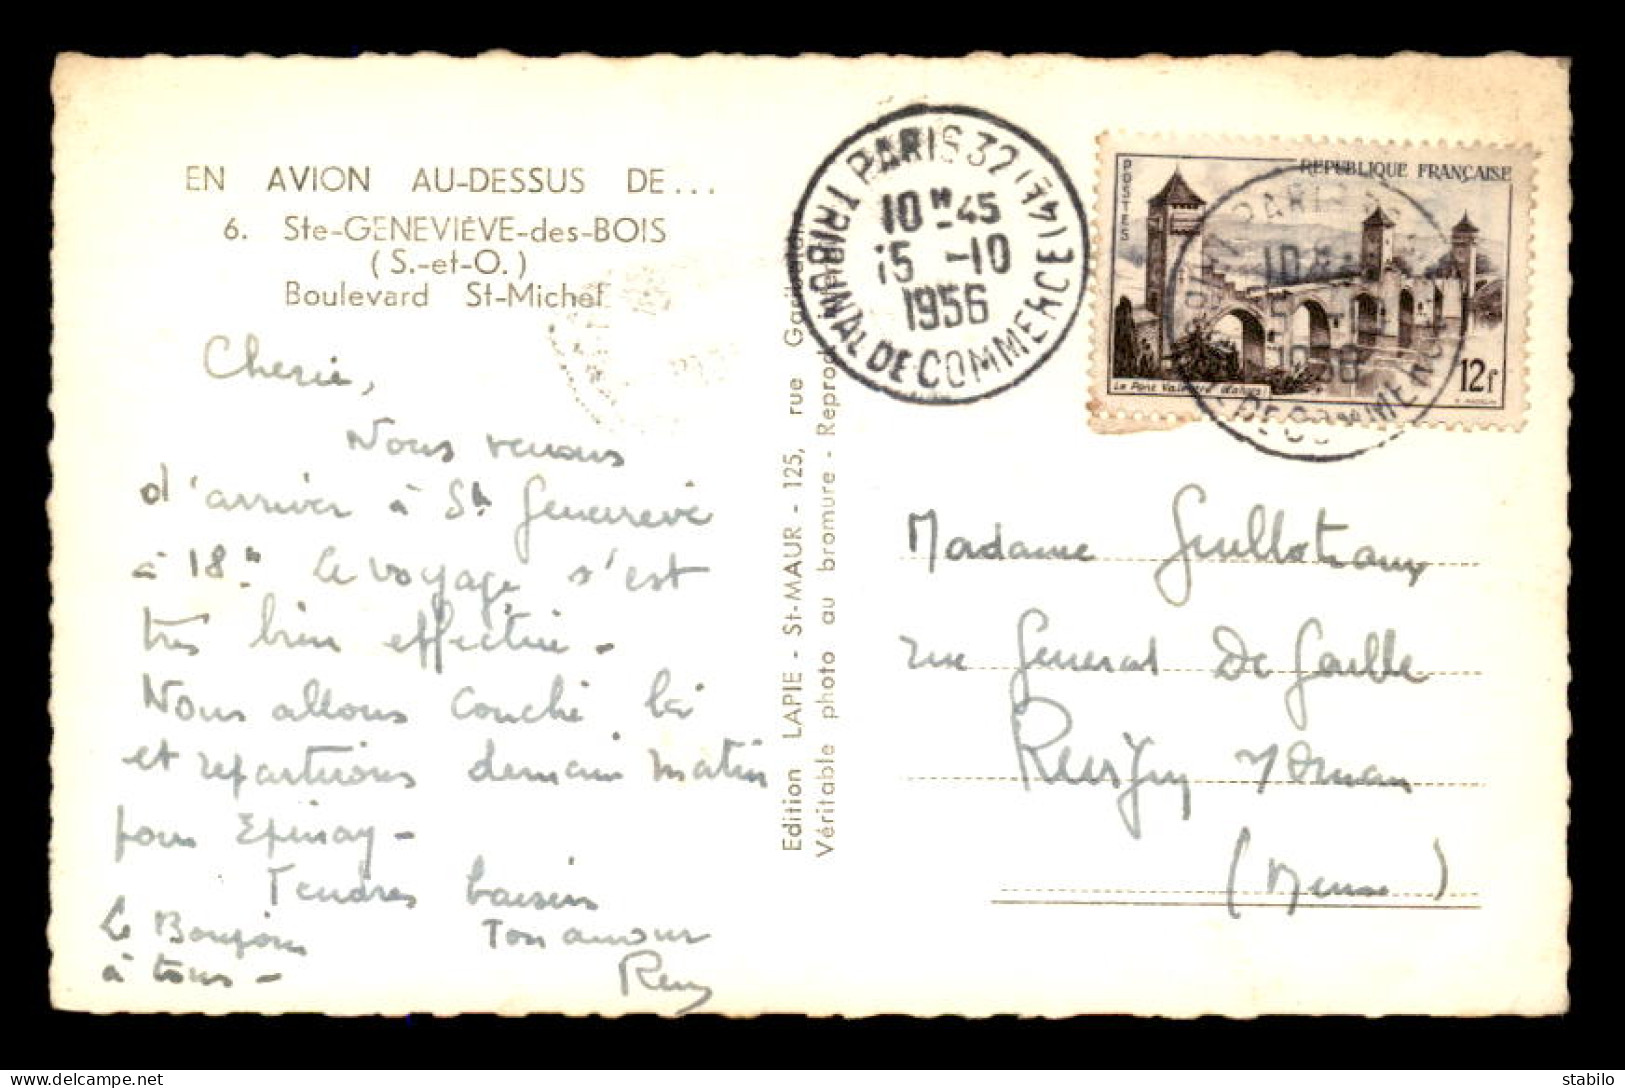 EN AVION AU-DESSUS DE...
6. Ste-GENEVIÈVE-des-BOIS
(S.-et-O.)
Boulevard St-Michel
Cherie,
Nous venons
d'arriver à Ste Genevieve
à 18h Le voyage s'est
très bien effectué -
Nous allons couché là
et repartirons demain matin
pour Epinay -
Tendres baisers
Le Bonjour
à tous -
Ton amour
Remy
Edition LAPIE - St-MAUR - 125, rue Garibaldi
Véritable photo au bromure - Reprod. interdite
TRIBUNAL DE COMMERCE (4E) PARIS 32
10H45
15 -10
1956
POSTES
REPUBLIQUE FRANÇAISE
Le Pont Valentré Cahors
12f
Madame Guillotaux
rue General De Gaulle
Revigny s/ Ornain
(Meuse)
delcampe.net
stabilo